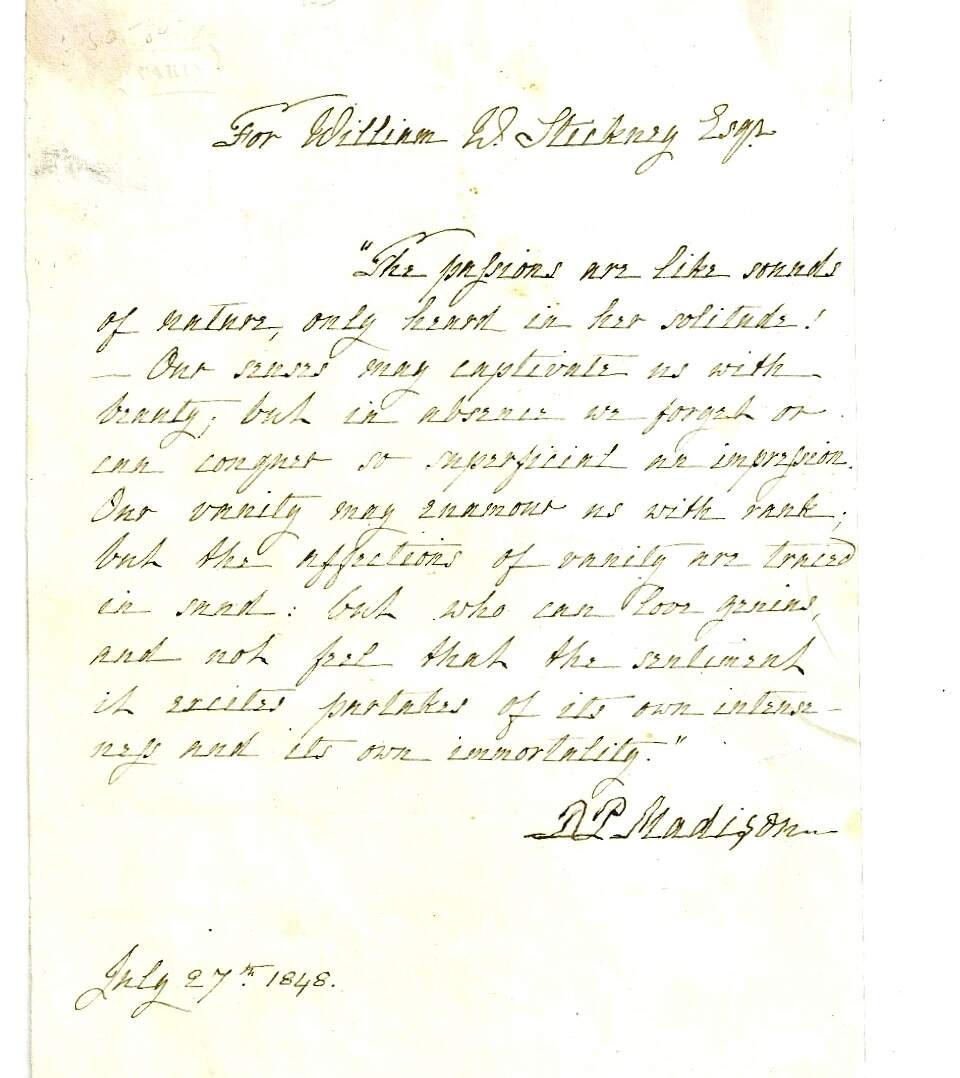 For William W. Stickney Esqr.
"The paſsions are like sounds
of nature, only heard in her solitude!
— Our senses may captivate us with
beauty; but in absence we forget or
can conquer so superficial an impreſsion.
Our vanity may enamour us with rank;
but the affections of vanity are traced
in sand: but who can love genius,
and not feel that the sentiment
it excites partakes of its own intense-
neſs and its own immortality."
D P Madison
July 27th. 1848.